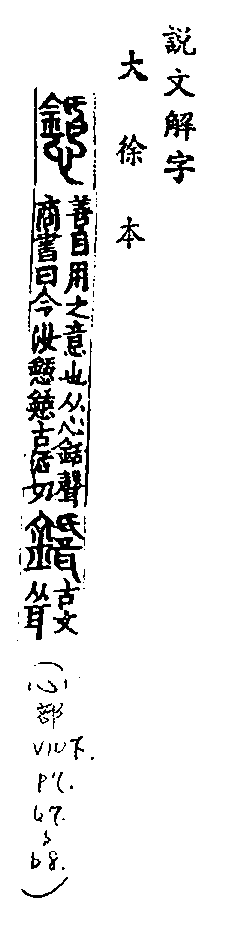 説文解字
大徐本
善自用之意也从心銛聲
商書曰今汝古活切
古文
从耳
(心部
下.
P7.
67.
68.)